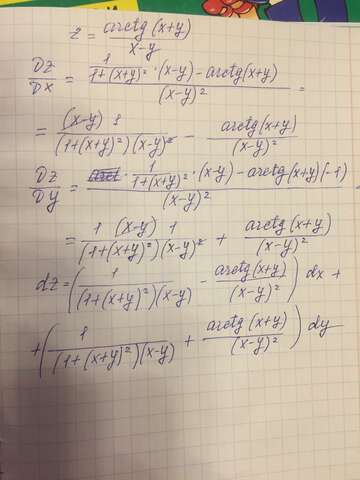 z = arctg(x+y) / (x-y)
Dz/Dx = (1/(1+(x+y)²) · (x-y) - arctg(x+y)) / (x-y)² =
= (x-y) 1 / ((1+(x+y)²)(x-y)²) - arctg(x+y) / (x-y)²
Dz/Dy = (1/(1+(x+y)²) · (x-y) - arctg(x+y)(-1)) / (x-y)²
= 1 (x-y) 1 / ((1+(x+y)²)(x-y)²) + arctg(x+y) / (x-y)²
dz = (1 / ((1+(x+y)²)(x-y)) - arctg(x+y) / (x-y)²) dx +
+ (1 / ((1+(x+y)²)(x-y)) + arctg(x+y) / (x-y)²) dy